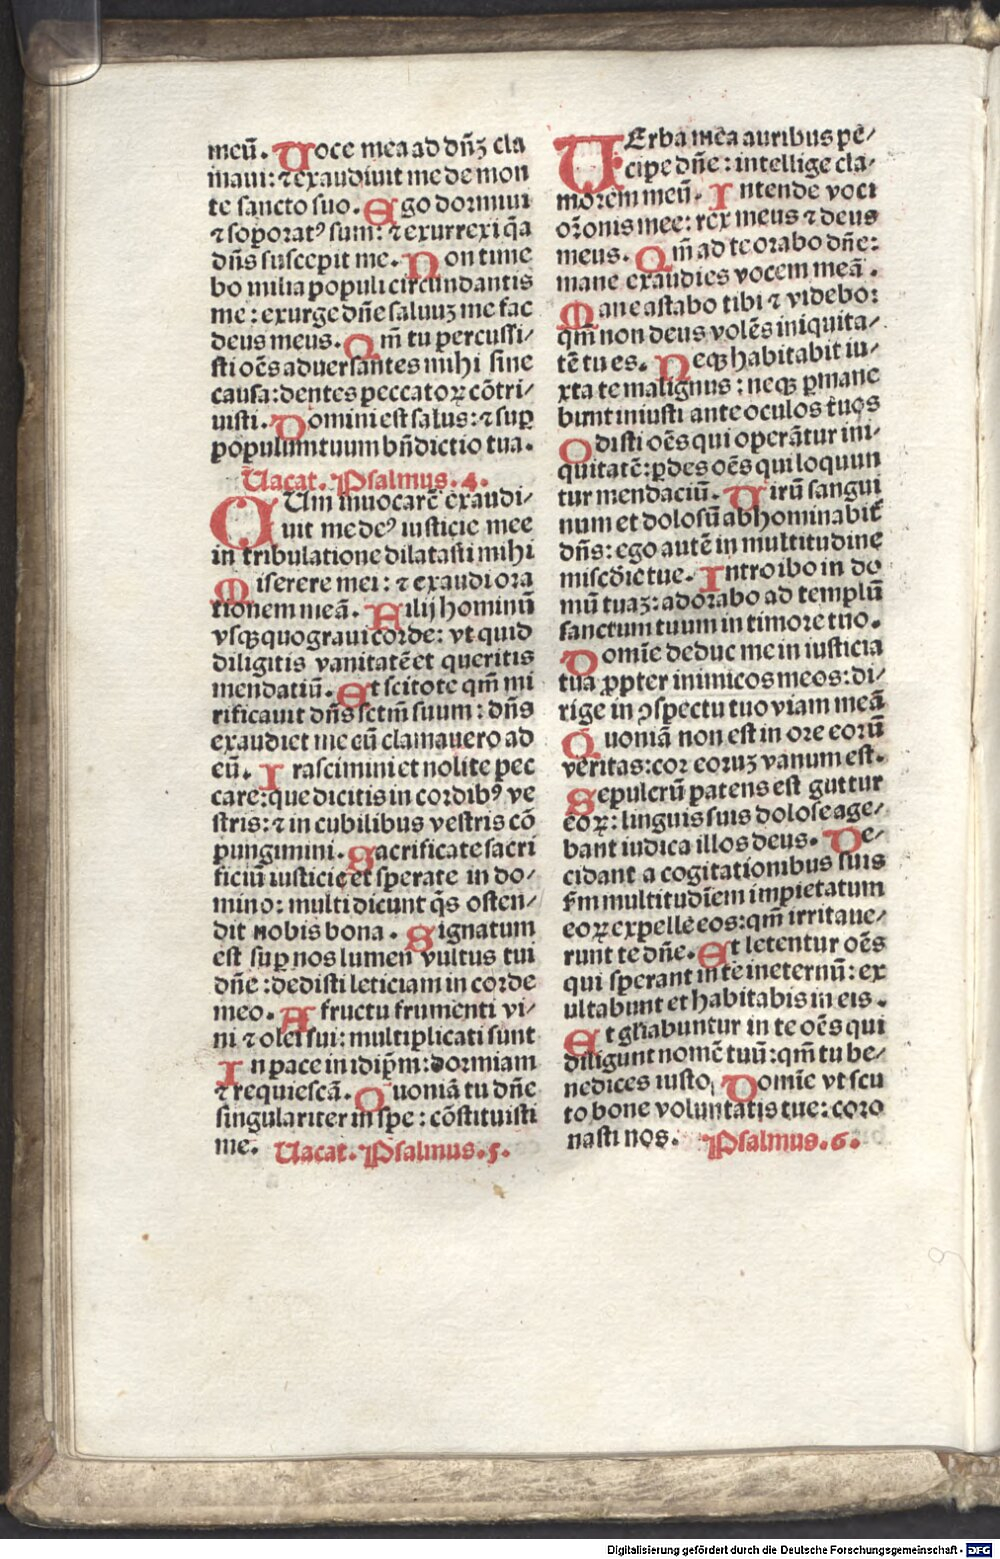 meū. Uoce mea ad dn̄ʒ cla
maui: ⁊ exaudiuit me de mon
te sancto suo. Ego dormiui
⁊ soporatꝰ sum: ⁊ exurrexi q̄a
dn̄s suscepit me. Non time
bo milia populi circūndantis
me: exurge dn̄e saluuʒ me fac
deus meus. Qm̄ tu percussi/
sti oēs aduersantes mihi sine
causa: dentes peccatoꝝ cōtri/
uisti. Domini est salus: ⁊ suꝑ
populum tuum bn̄dictio tua.
Uacat. Psalmus. 4.
CUm inuocarē exaudi/
uit me deꝰ iusticie mee
in tribulatione dilatasti mihi
Miserere mei: ⁊ exaudi ora
tionem meā. Filij hominū
vsqꝫquo graui corde: vt quid
diligitis vanitatē et queritis
mendatiū. Et scitote qm̄ mi
rificauit dn̄s sctm̄ suum: dn̄s
exaudiet me cū clamauero ad
eū. Irascimini et nolite pec
care: que dicitis in cordibꝰ ve
stris: ⁊ in cubilibus vestris cō
pungimini. Sacrificate sacri
ficiū iusticie et sperate in do/
mino: multi dicunt q̄s osten/
dit nobis bona. Signatum
est suꝑ nos lumen vultus tui
dn̄e: dedisti leticiam in corde
meo. A fructu frumenti vi/
ni ⁊ olei sui: multiplicati sunt
In pace in idip̄m: dormiam
⁊ requiescā. Quoniā tu dn̄e
singulariter in spe: cōstituisti
me. Uacat. Psalmus. 5.
UErba mea auribus pe/
cipe dn̄e: intellige cla/
morem meū. Intende voci
or̄onis mee: rex meus ⁊ deus
meus. Qm̄ ad te orabo dn̄e:
mane exaudies vocem meā.
Mane astabo tibi ⁊ videbo:
qm̄ non deus volēs iniquita/
tē tu es. Neqꝫ habitabit iu/
xta te malignus: neqꝫ ꝑmane
bunt iniusti ante oculos tuos
Odisti oēs qui operātur ini/
quitatē: ꝑdes oēs qui loquun
tur mendaciū. Uirū sangui
num et dolosū abhominabit̄
dn̄s: ego autē in multitudine
misc̄die tue. Introibo in do
mū tuaʒ: adorabo ad templū
sanctum tuum in timore tuo.
Domīe deduc me in iusticia
tua ꝓpter inimicos meos: di/
rige in ꝯspectu tuo viam meā
Quoniā non est in ore eorū
veritas: cor eoruʒ vanum est.
Sepulcrū patens est guttur
eoꝝ: linguis suis dolose age/
bant iudica illos deus. De/
cidant a cogitationibus suis
ẜm multitudīem impietatum
eoꝝ expelle eos: qm̄ irritaue/
runt te dn̄e. Et letentur oēs
qui sperant in te in eternū: ex
ultabunt et habitabis in eis.
Et gl̄iabuntur in te oēs qui
diligunt nomē tuū: qm̄ tu be/
nedices iusto. Domīe vt scu
to bone voluntatis tue: coro
nasti nos. Psalmus. 6.
Digitalisierung gefördert durch die Deutsche Forschungsgemeinschaft - DFG